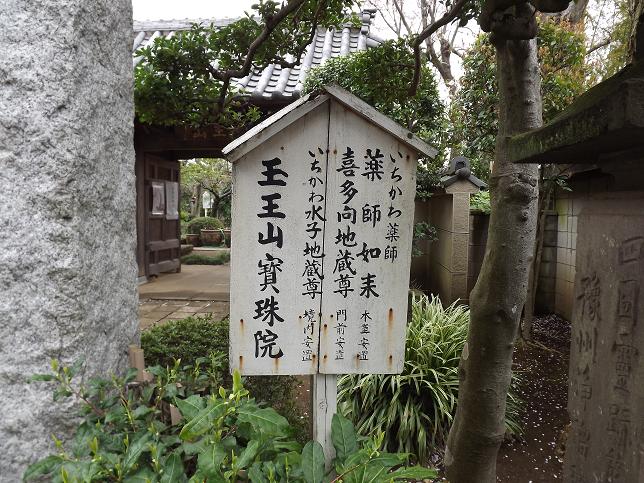 いちかわ薬師
薬師如来 本堂安置
喜多向地蔵尊 門前安置
いちかわ水子地蔵尊 境内安置
玉王山寶珠院
四國霊蹟
豫州